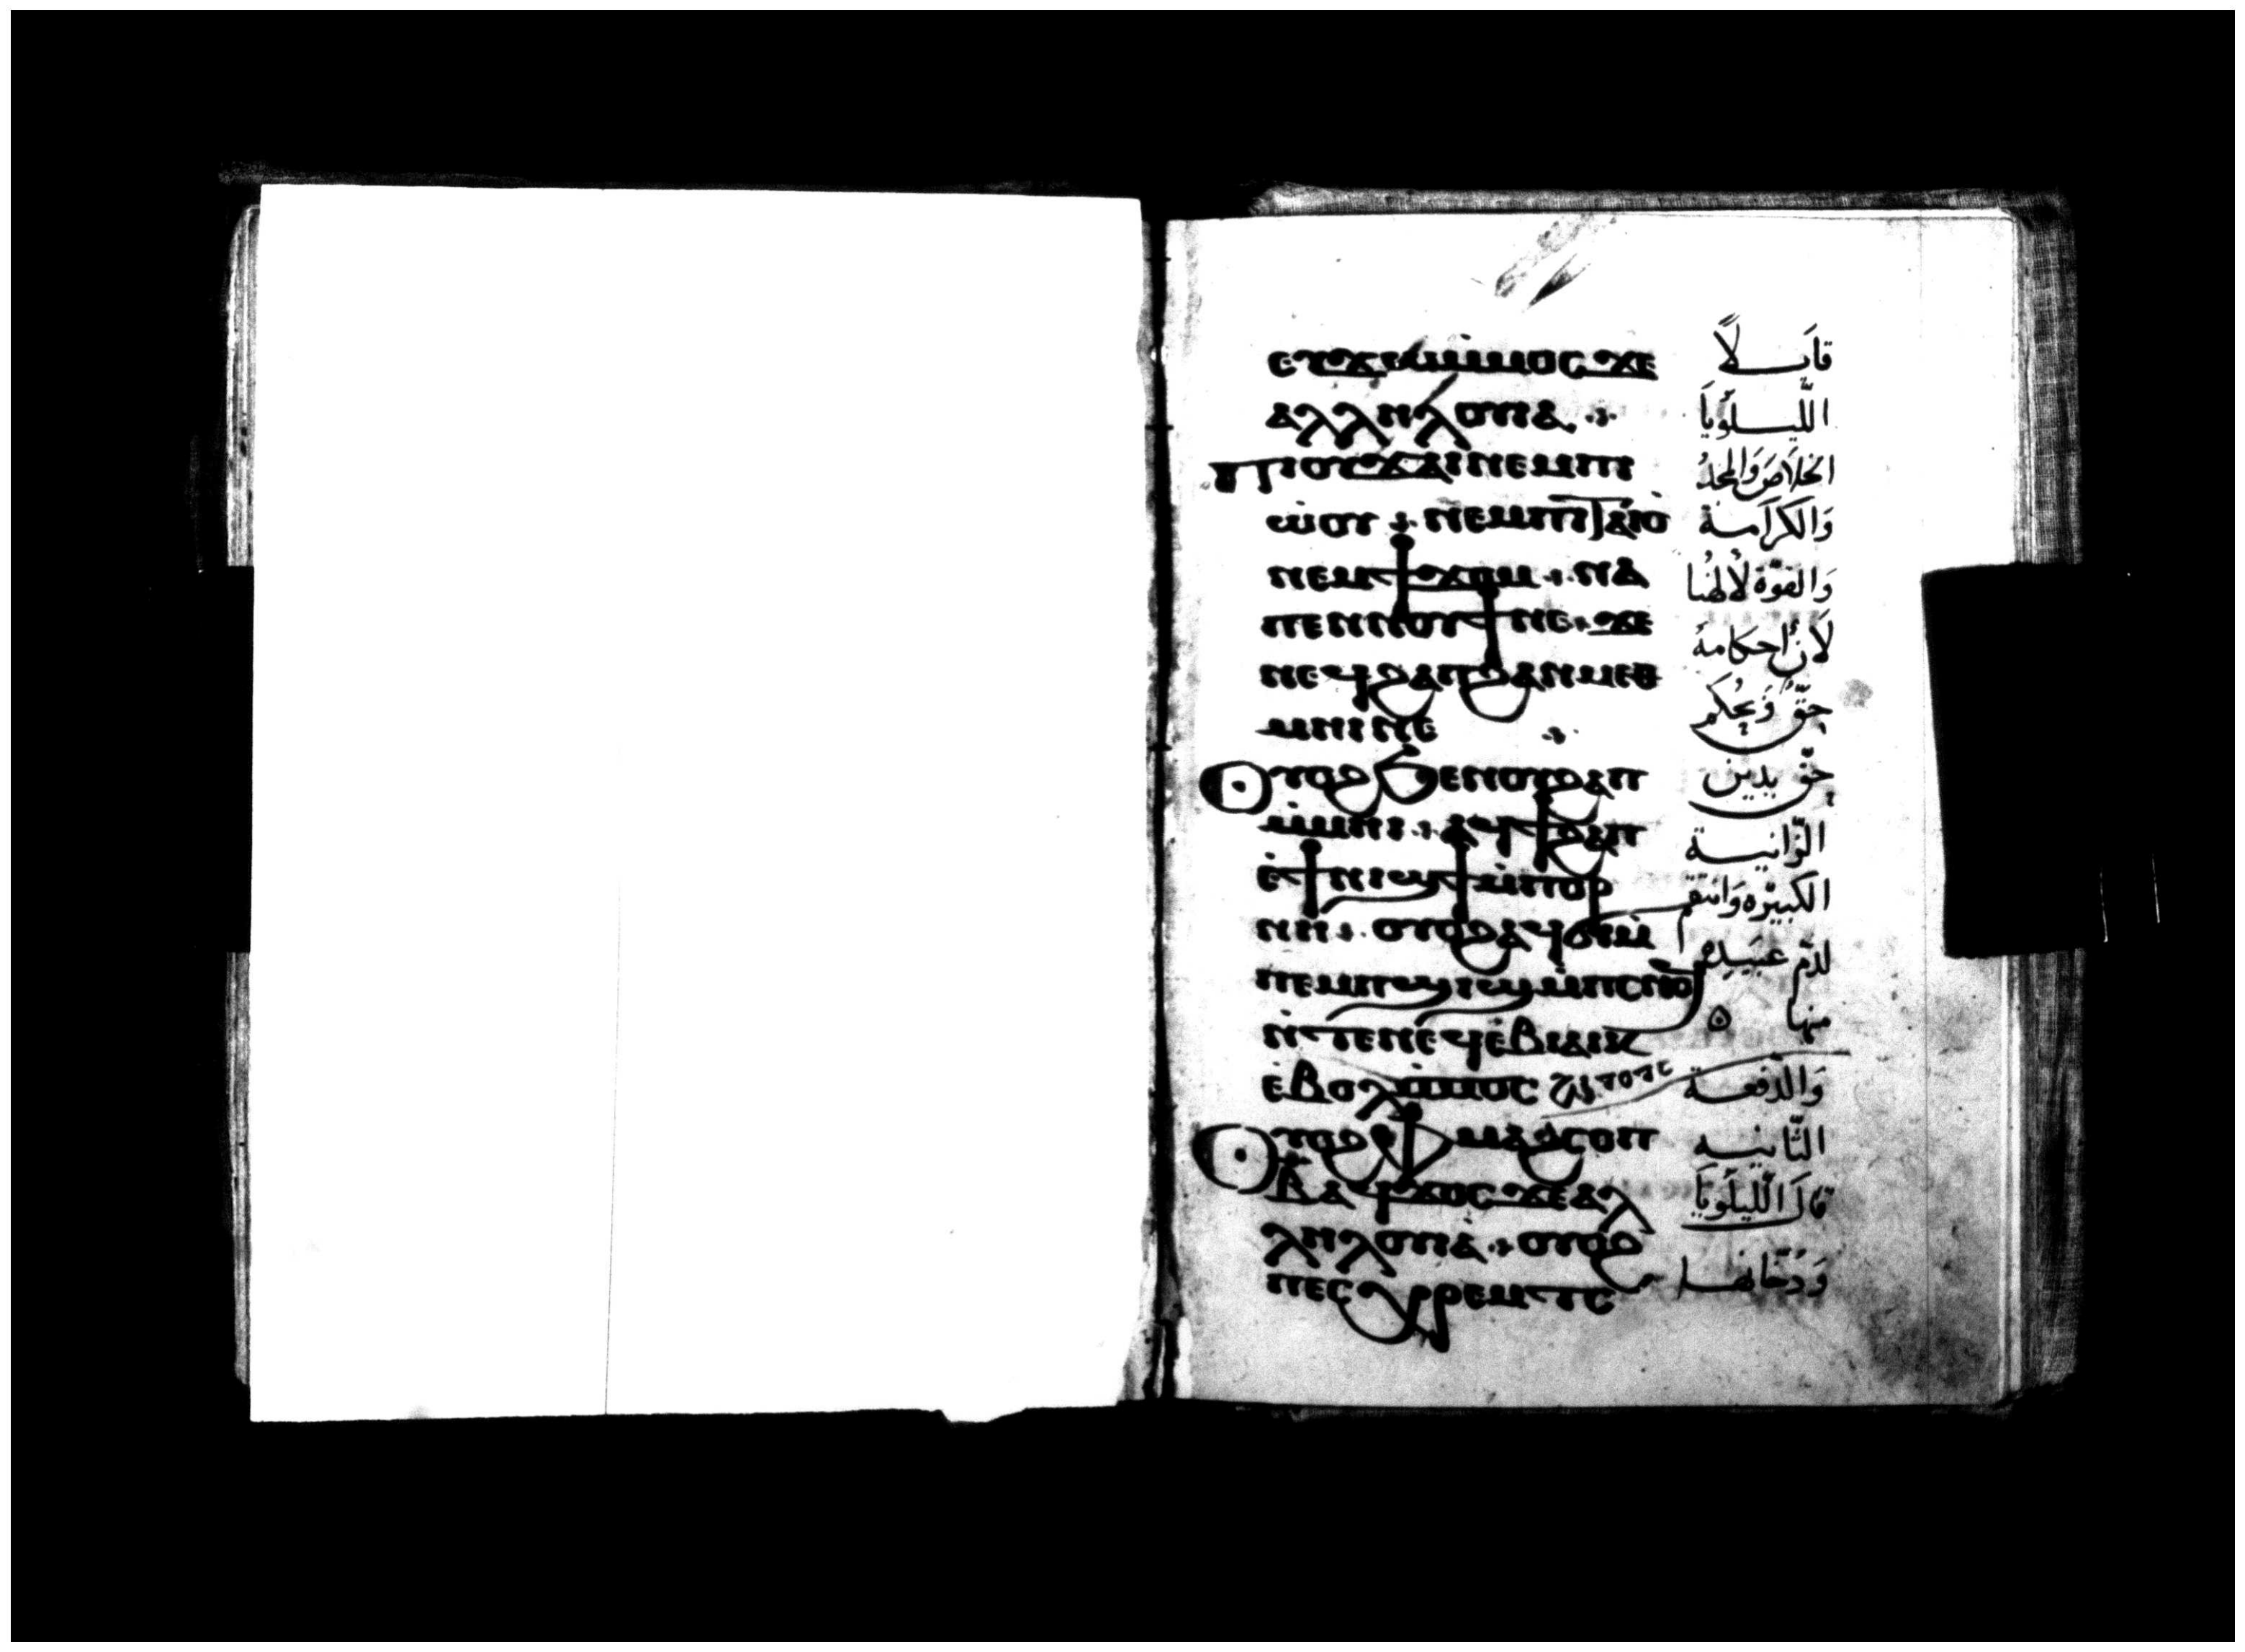 ⲉⲩϫⲱⲙ̀ⲙⲟⲥ ϫⲉ
ⲁⲗⲗⲏⲗⲟⲩⲓⲁ
ⲡⲓⲟⲩϫⲁⲓ ⲛⲉⲙ ⲡⲓ
ⲱ̀ⲟⲩ ⲛⲉⲙ ⲡⲓⲧⲁⲓⲟ̀
ⲛⲉⲙ ϯϫⲟⲙ ⲛⲁ
ⲡⲉⲛⲛⲟⲩϯ ⲛⲉ ϫⲉ
ⲛⲉϥϩⲁⲡ ϩⲁⲛⲙⲉⲑ
ⲙⲏⲓ ⲛⲉ
Ⲟⲩⲟϩ ϧⲉⲛ ⲟⲩϩⲁⲡ
ⲙ̀ⲙⲏⲓ ⲁϥϯϩⲁⲡ
ⲉ̀ϯⲛⲓϣϯ ⲙ̀ⲡⲟⲣ
ⲛⲏ ⲟⲩⲟϩ ⲁϥϭⲓ ⲙ̀
ⲡⲉⲙⲡϣⲓϣ ⲙ̀ⲡⲥⲛⲟϥ
ⲛ̀ⲧⲉ ⲛⲉϥⲉ̀ⲃⲓⲁⲓⲕ
ⲉ̀ⲃⲟⲗ ⲙ̀ⲙⲟⲥ ϩⲓⲧⲟⲧⲥ
Ⲟⲩⲟϩ ⲫⲙⲁϩⲥⲟⲡ
ⲃ̅ ⲁϥϫⲟⲥ ϫⲉ ⲁⲗ
ⲗⲏⲗⲟⲩⲓⲁ̀ ⲟⲩⲟϩ
ⲡⲉⲥⲭⲣⲉⲙⲧⲥ
قايلاً
اللّيلُوياَ
الخلاَصَ وَالمجدُ
وَالكرَامـة
وَالقوّة لأُلهنا
لاَن أحكامهُ
حَقٌّ وَبحُكم
حقٍّ يدين
الزّانيـة
الكبيرَه وَانتقم
لدَم عَبيده
منها
وَالدّفعـة
الثّانيـه
قالَ اللّيلُوياَ
وَدُخّانهـا